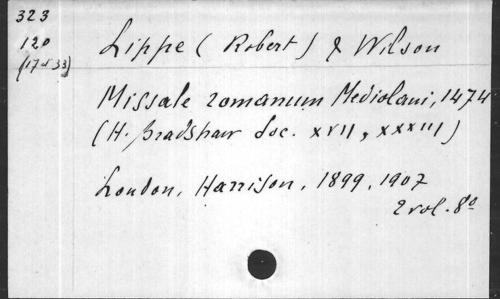 323
120
(17 & 33)
Lippe (Robert) & Wilson
Missale romanum Mediolani, 1474
(H. Bradshaw Soc. XVII, XXXIII)
London, Harrison, 1899, 1907
2 vol. 8º